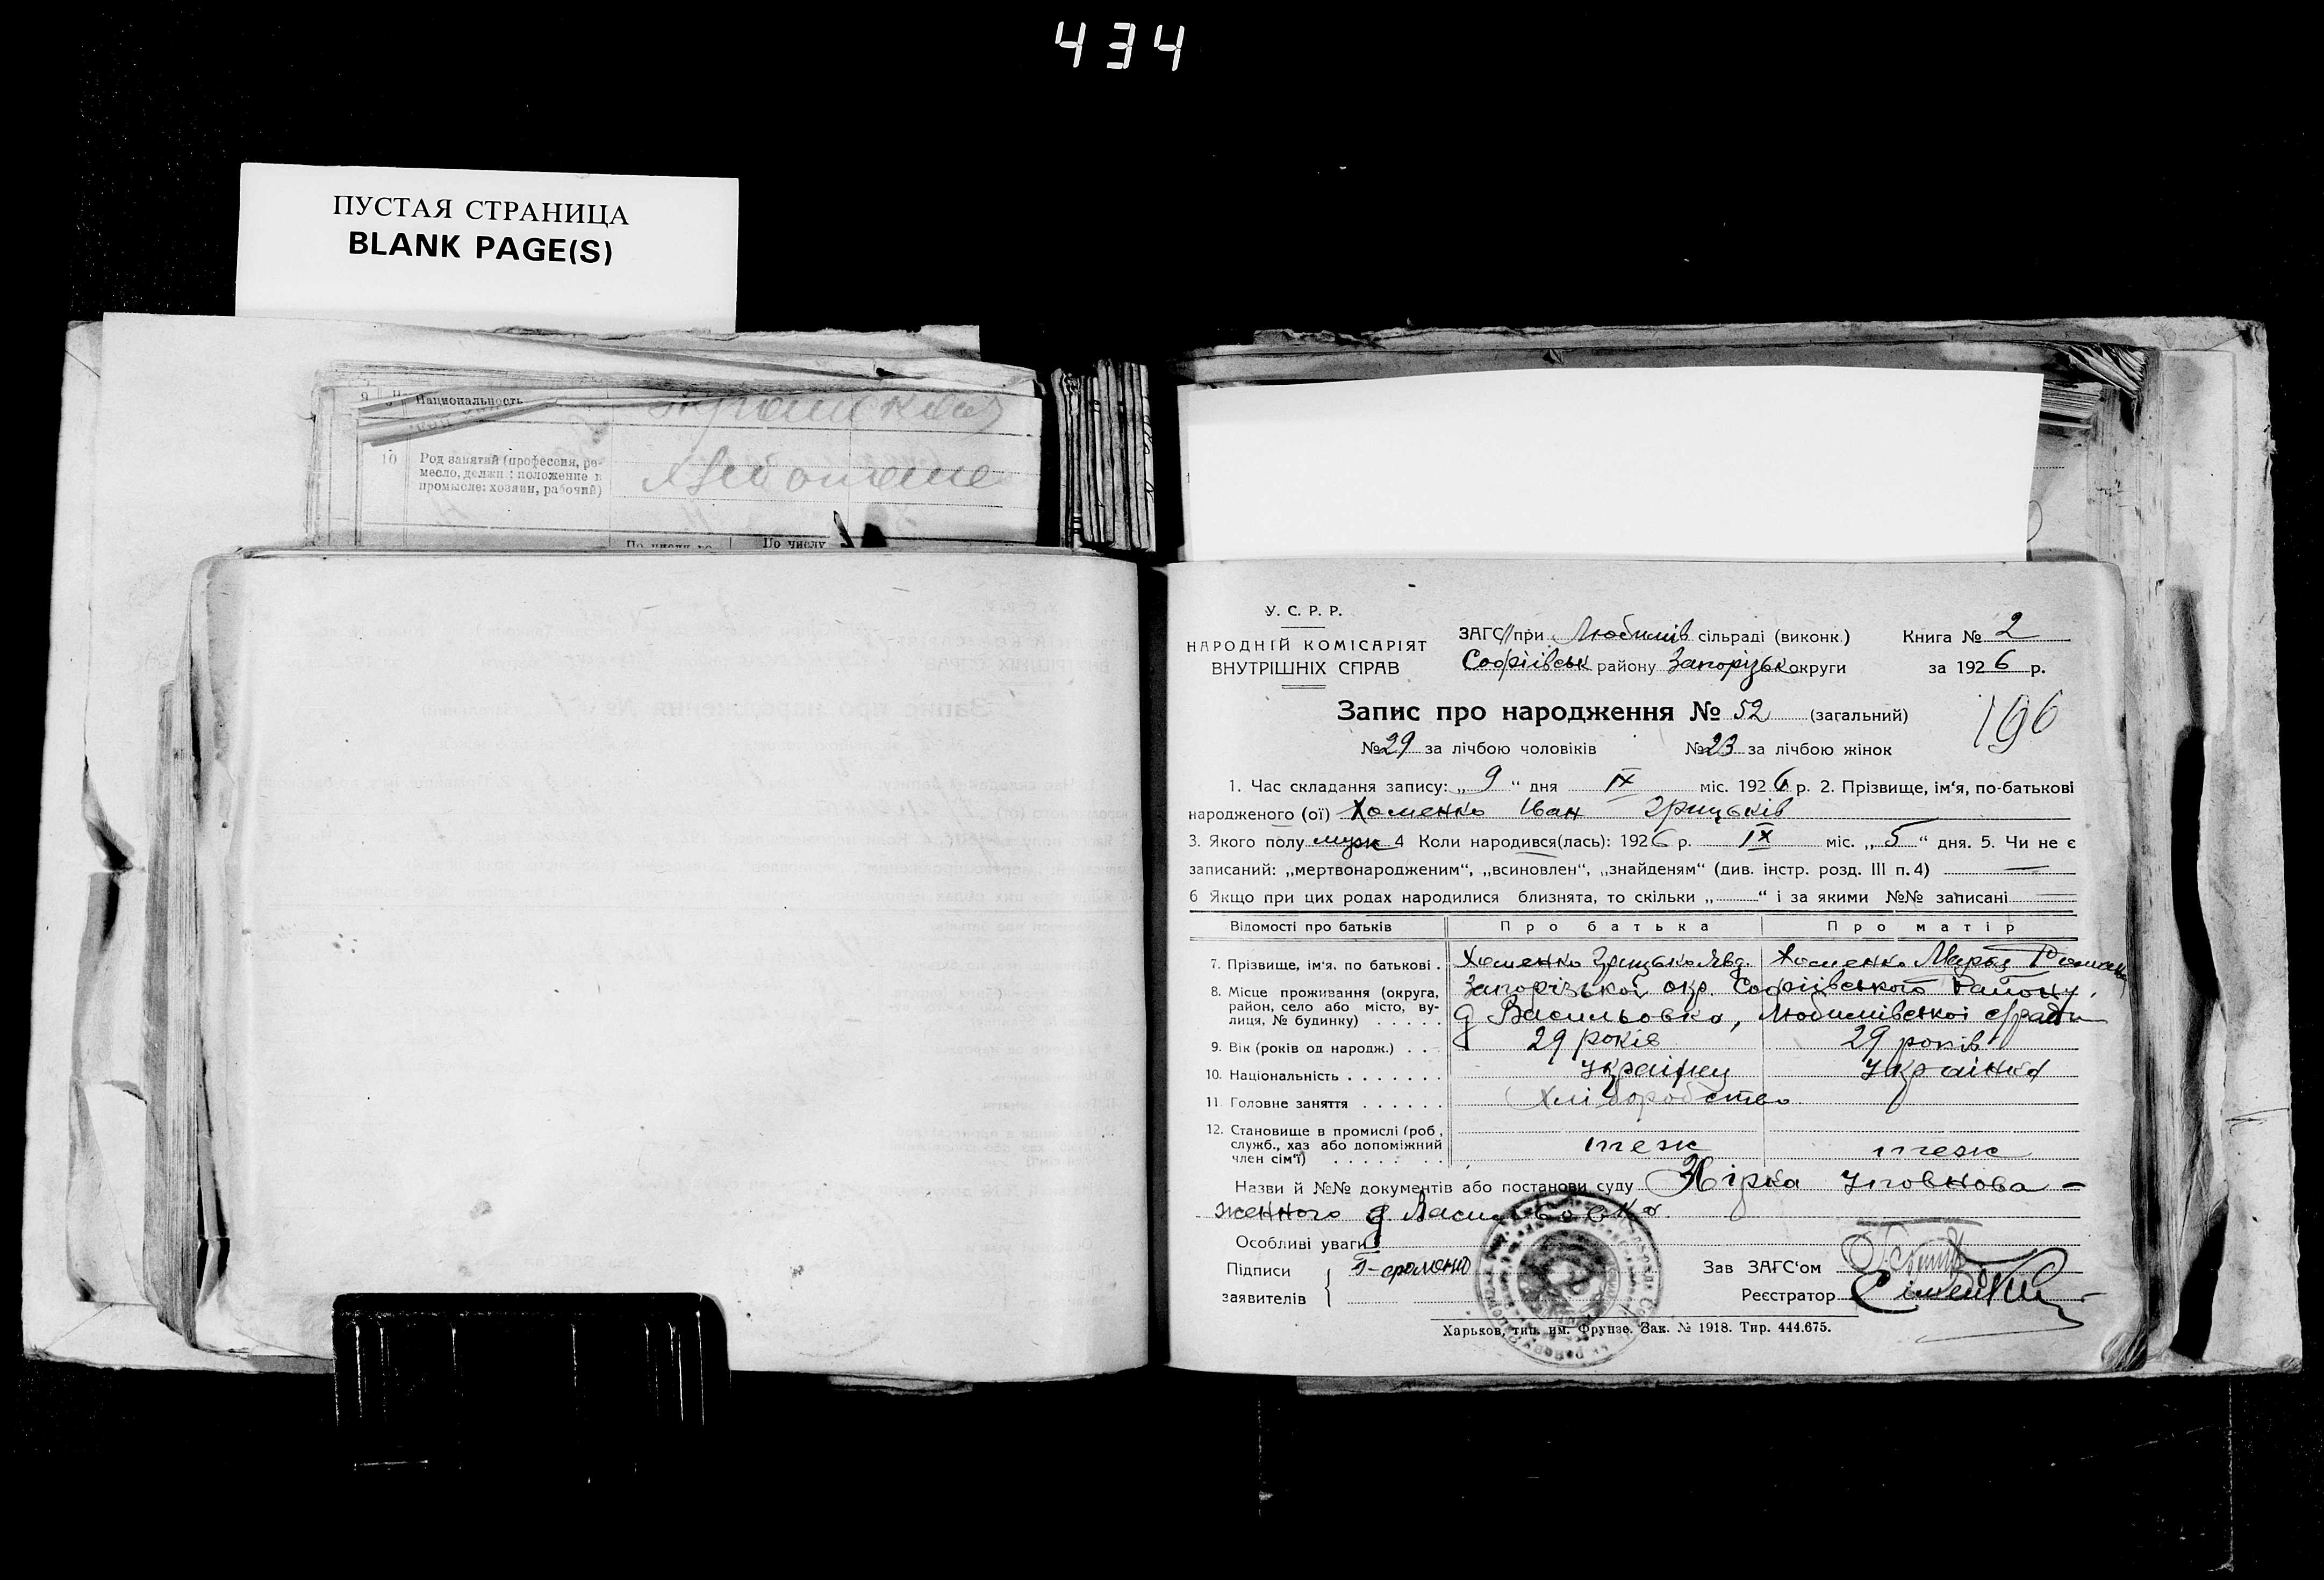 434
ПУСТАЯ СТРАНИЦА
BLANK PAGE(S)
9 Национальность
10 Род занятий (профессия, ре-
месло, должн.; положение в
промысле: хозяин, рабочий)
По числу
У. С. Р. Р.
НАРОДНІЙ КОМІСАРІЯТ
ВНУТРІШНІХ СПРАВ
ЗАГС при Любимів сільраді (виконк.) Книга № 2
Софіівськ району Запорізьк округи за 1926 р.
Запис про народження № 52 (загальний)
196
№ 29 за лічбою чоловіків № 23 за лічбою жінок
1. Час складання запису: „ 9 “ дня IX міс. 1926 р. 2. Прізвище, ім‘я, по-батькові
народженого (ої) Хоменко Іван Грицьків
3. Якого полу муж 4 Коли народився(лась): 1926 р. IX міс. „ 5 “ дня. 5. Чи не є
записаний: „мертвонародженим“, „всиновлен“, „знайденям“ (див. інстр. розд. III п. 4) —
6 Якщо при цих родах народилися близнята, то скільки „ “ і за якими №№ записані
Відомості про батьків Про батька Про матір
7. Прізвище, ім‘я, по батькові . Хоменко Грицько Явд. Хоменко Марія
8. Місце проживання (округа, Запорізькоі окр. Софіівського Району,
район, село або місто, ву-
лиця, № будинку) . . . . . д Васильовка, Любимівськоі с/ради
9. Вік (років од народж.) . . . 29 років 29 років
10. Національність . . . . . . . украінец украінка
11. Головне заняття . . . . . . Хліборобство
12. Становище в промислі (роб.,
служб., хаз або допоміжний
член сім‘ї) . . . . . . . теж теж
Назви й №№ документів або постанови суду Збірка уповнова-
женного д Васильовка
Особливі уваги
Підписи
заявителів
Зав ЗАГС‘ом
Реєстратор
Харьков, тип. им. Фрунзе. Зак. № 1918. Тир. 444.675.